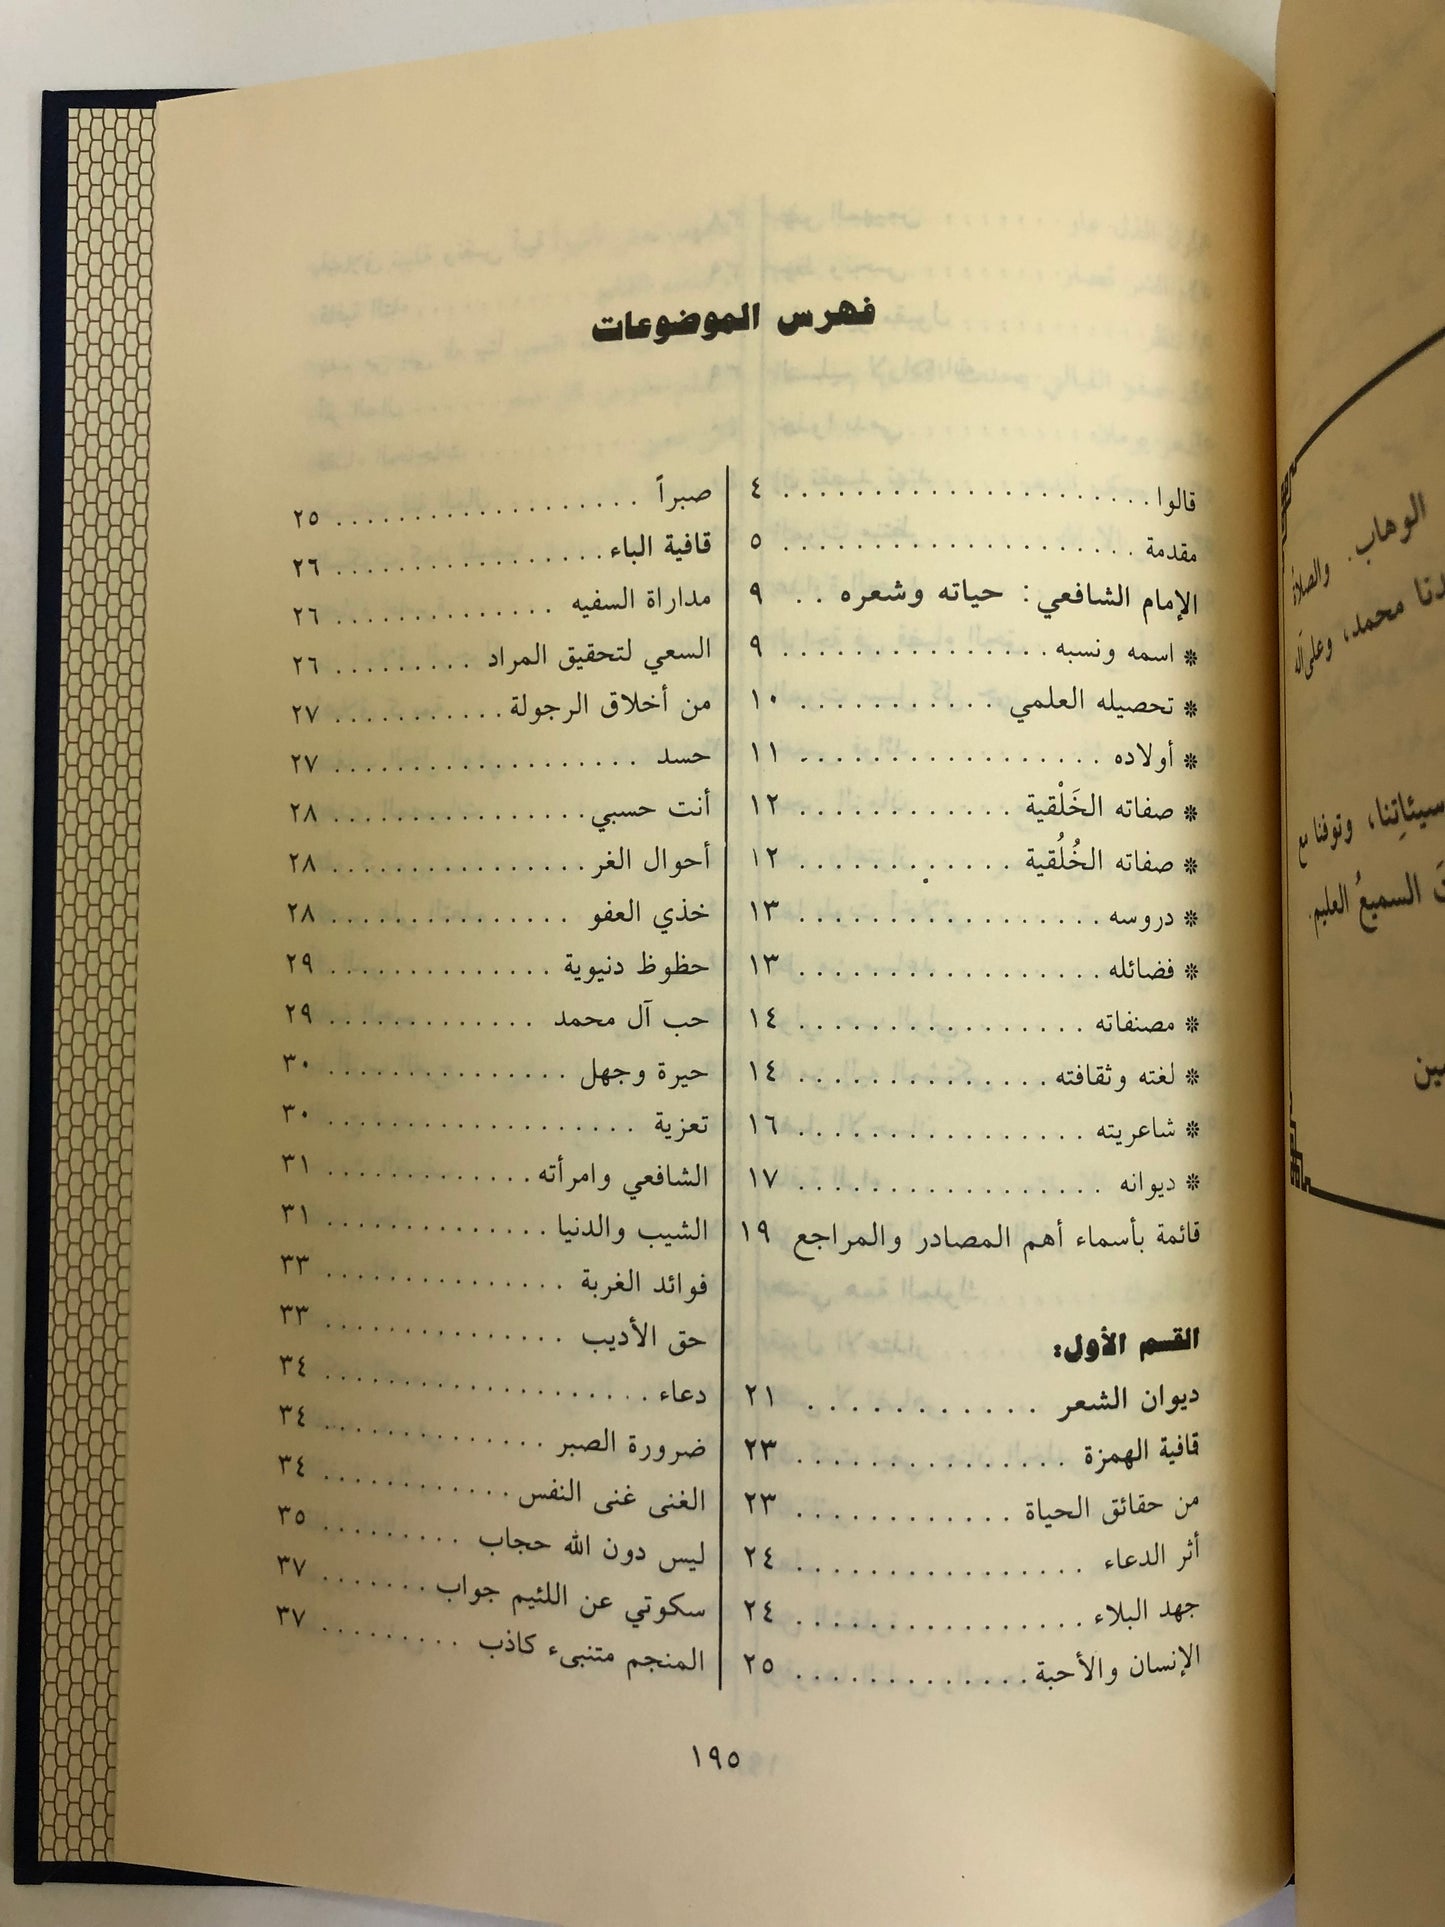 فهرس الموضوعات
قالوا ..................... ٤
مقدمة ..................... ٥
الإمام الشافعي: حياته وشعره .. ٩
* اسمه ونسبه ............... ٩
* تحصيله العلمي ........... ١٠
* أولاده ................. ١١
* صفاته الخَلْقية ............ ١٢
* صفاته الخُلُقية ............ ١٢
* دروسه ................. ١٣
* فضائله ................. ١٣
* مصنفاته ................ ١٤
* لغته وثقافته .............. ١٤
* شاعريته ................ ١٦
* ديوانه ................. ١٧
قائمة بأسماء أهم المصادر والمراجع ١٩
القسم الأول:
ديوان الشعر ........... ٢١
قافية الهمزة ............... ٢٣
من حقائق الحياة ............ ٢٣
أثر الدعاء ................ ٢٤
جهد البلاء ................ ٢٤
الإنسان والأحبة ............. ٢٥
صبراً .................. ٢٥
قافية الباء ................ ٢٦
مداراة السفيه ............. ٢٦
السعي لتحقيق المراد ......... ٢٦
من أخلاق الرجولة ........... ٢٧
حسد .................. ٢٧
أنت حسبي ............... ٢٨
أحوال الغر ............... ٢٨
خذي العفو .............. ٢٨
حظوظ دنيوية ............. ٢٩
حب آل محمد ............. ٢٩
حيرة وجهل .............. ٣٠
تعزية .................. ٣٠
الشافعي وامرأته ............ ٣١
الشيب والدنيا ............. ٣١
فوائد الغربة .............. ٣٣
حق الأديب .............. ٣٣
دعاء ................... ٣٤
ضرورة الصبر ............. ٣٤
الغنى غنى النفس ............ ٣٤
ليس دون الله حجاب ......... ٣٥
سكوتي عن اللئيم جواب ....... ٣٧
المنجم متنبىء كاذب ......... ٣٧
١٩٥
الوهاب. والصلاة
محمد، وعلى آله
سيئاتِنا، وتوفنا مع
السميعُ العليم.